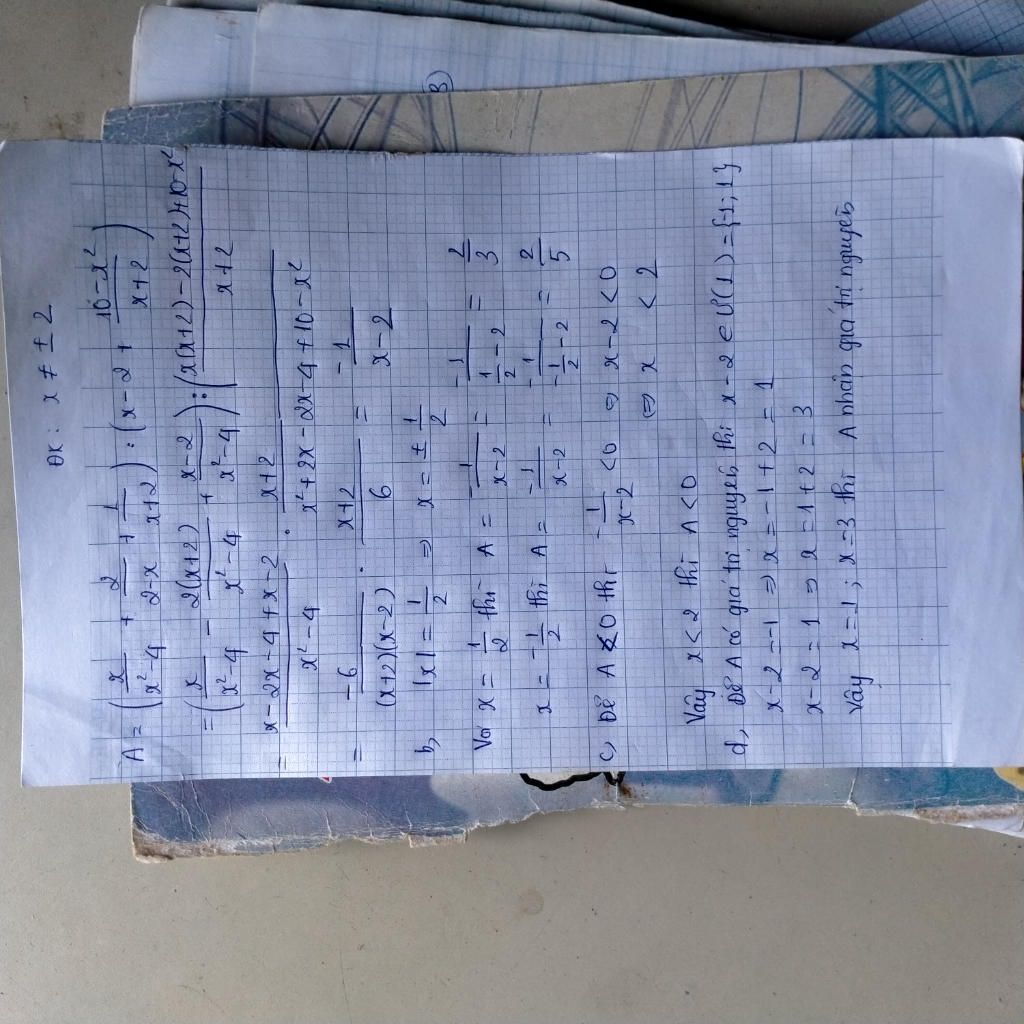 ĐK: x ≠ ± 2
A = (x/(x²-4) + 2/(2-x) + 1/(x+2)) : (x-2 + (10-x²)/(x+2))
= (x/(x²-4) - 2(x+2)/(x²-4) + (x-2)/(x²-4)) : (x(x+2) - 2(x+2)+10-x²)/(x+2)
= (x-2x-4+x-2)/(x²-4) . (x+2)/(x²+2x-2x-4+10-x²)
= -6/((x+2)(x-2)) . (x+2)/6 = -1/(x-2)
b, |x| = 1/2 ⇒ x = ± 1/2
Với x = 1/2 thì A = -1/(x-2) = -1/(1/2-2) = 2/3
x = -1/2 thì A = -1/(x-2) = -1/(-1/2-2) = 2/5
c, Để A < 0 thì -1/(x-2) < 0 ⇔ x-2 < 0
⇔ x < 2
Vậy x < 2 thì A < 0
d, Để A có giá trị nguyên thì x-2 ∈ Ư(1) = {-1; 1}
x-2 = -1 ⇒ x = -1+2 = 1
x-2 = 1 ⇒ x = 1+2 = 3
Vậy x = -1; x = 3 thì A nhận giá trị nguyên
B